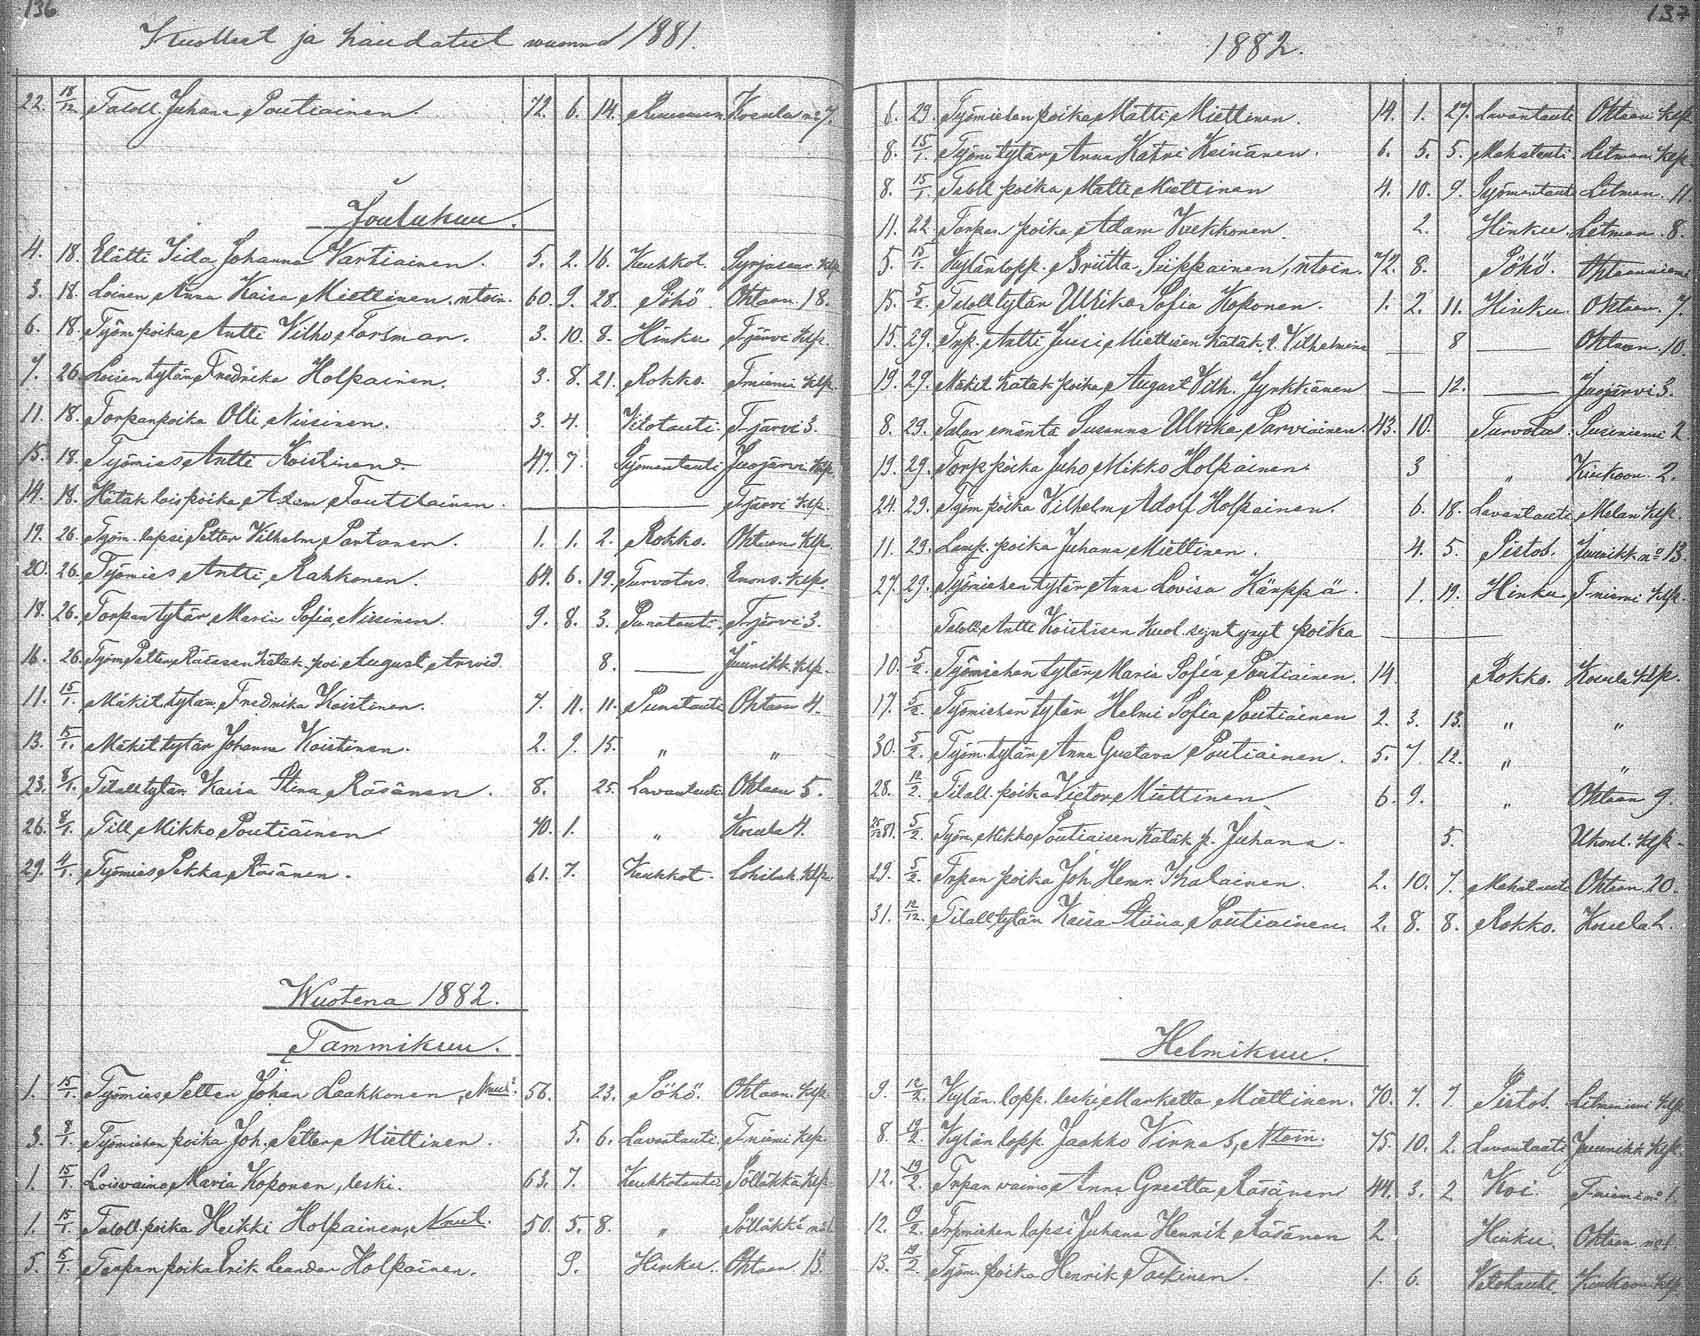 136
Kuolleet ja haudatut wuonna 1881.
22. 18/12. Taloll. Juhana Poutiainen. 72. 6. 14. Kosula no 7.
Joulukuu.
4. 18. Elätti Iida Johanna Vartiainen. 5. 2. 16. Keuhkot. klp.
3. 18. Loinen Anna Kaisa Miettinen, ntoin. 60. 9. 28. Pöhö. Ohtaan. 18.
6. 18. Työm. poika Antti Vilho Forsman. 3. 10. 8. Hinku T-järvi klp.
7. 26. Loisen tytär Fredrika Holpainen. 3. 8. 21. Rokko. T-niemi klp.
11. 18. Torpan poika Olli Nissinen. 3. 4. T-järvi 3.
15. 18. Työmies Antti Koistinen. 47. 7. Syömentauti Juojärvi klp.
14. 18. Hätäk. lois poika Adam — T-järvi klp.
19. 26. Työm. lapsi Petter Vilhelm Partanen. 1. 1. 2. Rokko. Ohtaan klp.
20. 26. Työmies Antti Rahkonen. 64. 6. 19. Turvotus. klp.
18. 26. Torpan tytär Maria Sofia Nissinen. 9. 8. 3. Punatauti. T-järvi 3.
16. 26. Työm. Petter Räsäsen hätäk. poi August Arvid. 8. — Juurikk. klp.
11. 15/1. Mäkit. tytär Fredrika Koistinen. 7. 11. 11. Punatauti Ohtaan 4.
13. 15/1. Mäkit. tytär Johanna Koistinen. 2. 9. 15. " "
23. 8/1. Tilall. tytär Kaisa Stina Räsänen. 8. 25. Lavantauti Ohtaan 5.
26. 8/1. Till. Mikko Poutiainen 70. 1. " Kosula 4.
29. 4/1. Työmies Pekka Räsänen. 61. 7. Keuhkot. klp.
Wuotena 1882.
Tammikuu.
1. 15/1. Työmies Petter Johan Laakkonen, 56. 23. Pöhö. Ohtaan. klp.
3. 8/1. Työmiehen poika Joh. Petter Miettinen. 5. 6. Lavantauti. T-niemi klp.
1. 15/1. Loisvaimo Maria Koponen, leski. 63. 7. Keuhkotauti Pölläkkä klp.
1. 15/1. Taloll. poika Heikki Holpainen, 50. 5. 8. " Pölläkkä no 1.
5. 15/1. Torpan poika Erik Leander Holpainen. 9. Hinku. Ohtaan 13.
137
1882.
6. 29. Työmiehen poika Matti Miettinen. 14. 1. 27. Lavantauti Ohtaan klp.
8. 15/1. Työm. tytär Anna Katri Keinänen. 6. 5. 5. Mahatauti Litman. klp.
8. 15/1. Taloll. poika Matti Miettinen 4. 10. 9. Syömentauti Litman. 11.
11. 22. Torpan poika Adam Kukkonen. 2. Hinku. Litman. 8.
5. 15/1. Kylän lopp. Briitta Siippainen, ntoin. 72. 8. Pöhö.
15. 5/2. Tilall. tytär Ulrika Sofia Koponen. 1. 2. 11. Hinku Ohtaan 7.
15. 29. Trp. Antti Jussi Miettisen hätäk. t. Vilhelmina — 8 — Ohtaan 10.
19. 29. Mäkit. hätäk. poika August Vilh. Jyrkkänen — 12. — Juojärvi 3.
8. 29. Talon emäntä Susanna Ulrika Parviainen. 43. 10. Turvotus. Suseniemi 2
19. 29. Torp. poika Juho Mikko Holpainen. 3 " 2.
24. 29. Työm. poika Vilhelm Adolf Holpainen. 6. 18. Lavantauti klp.
11. 29. Lamp. poika Juhana Miettinen. 4. 5. Pistos. Juurikk. no 13.
27. 29. Työmiehen tytär Anna Lovisa Kärppä. 1. 19. Hinku T-niemi klp.
Taloll. Antti Koistisen kuol. syntynyt poika —
10. 5/2. Työmiehen tytär Maria Sofia Poutiainen. 14 Rokko. Kosula klp.
17. 5/2. Työmiehen tytär Helmi Sofia Poutiainen 2. 3. 13. " "
30. 5/2. Työm. tytär Anna Gustava Poutiainen. 5. 7. 12. " "
28. 12/2. Tilall. poika Victor Miettinen. 6. 9. " Ohtaan 9.
5/2. Työm. Mikko Poutiaisen hätäk. p. Juhana. 5. klp.
29. 5/2. Trpan poika Joh. Henr. Ikalainen. 2. 10. 7. Mahatauti Ohtaan 20.
31. 12/12. Tilall. tytär Kaisa Stiina Poutiainen. 2. 8. 8. Rokko. Kosula 2.
Helmikuu.
9. 12/2. Kylän lopp. leski Marketta Miettinen. 70. 7. 7. Pistos. Litmaniemi klp.
8. 19/2. Kylän lopp. Jaakko Ntoin. 75. 10. 2. Lavantauti Juurikk. klp.
12. 19/2. Trpan vaimo Anna Greetta Räsänen 44. 3. 2 Koi. T-niemi no 1.
12. 19/2. lapsi Juhana Henrik Räsänen 2 Hinku. Ohtaan no 1.
13. 19/2. Työm. poika Henrik Taskinen. 1. 6. klp.